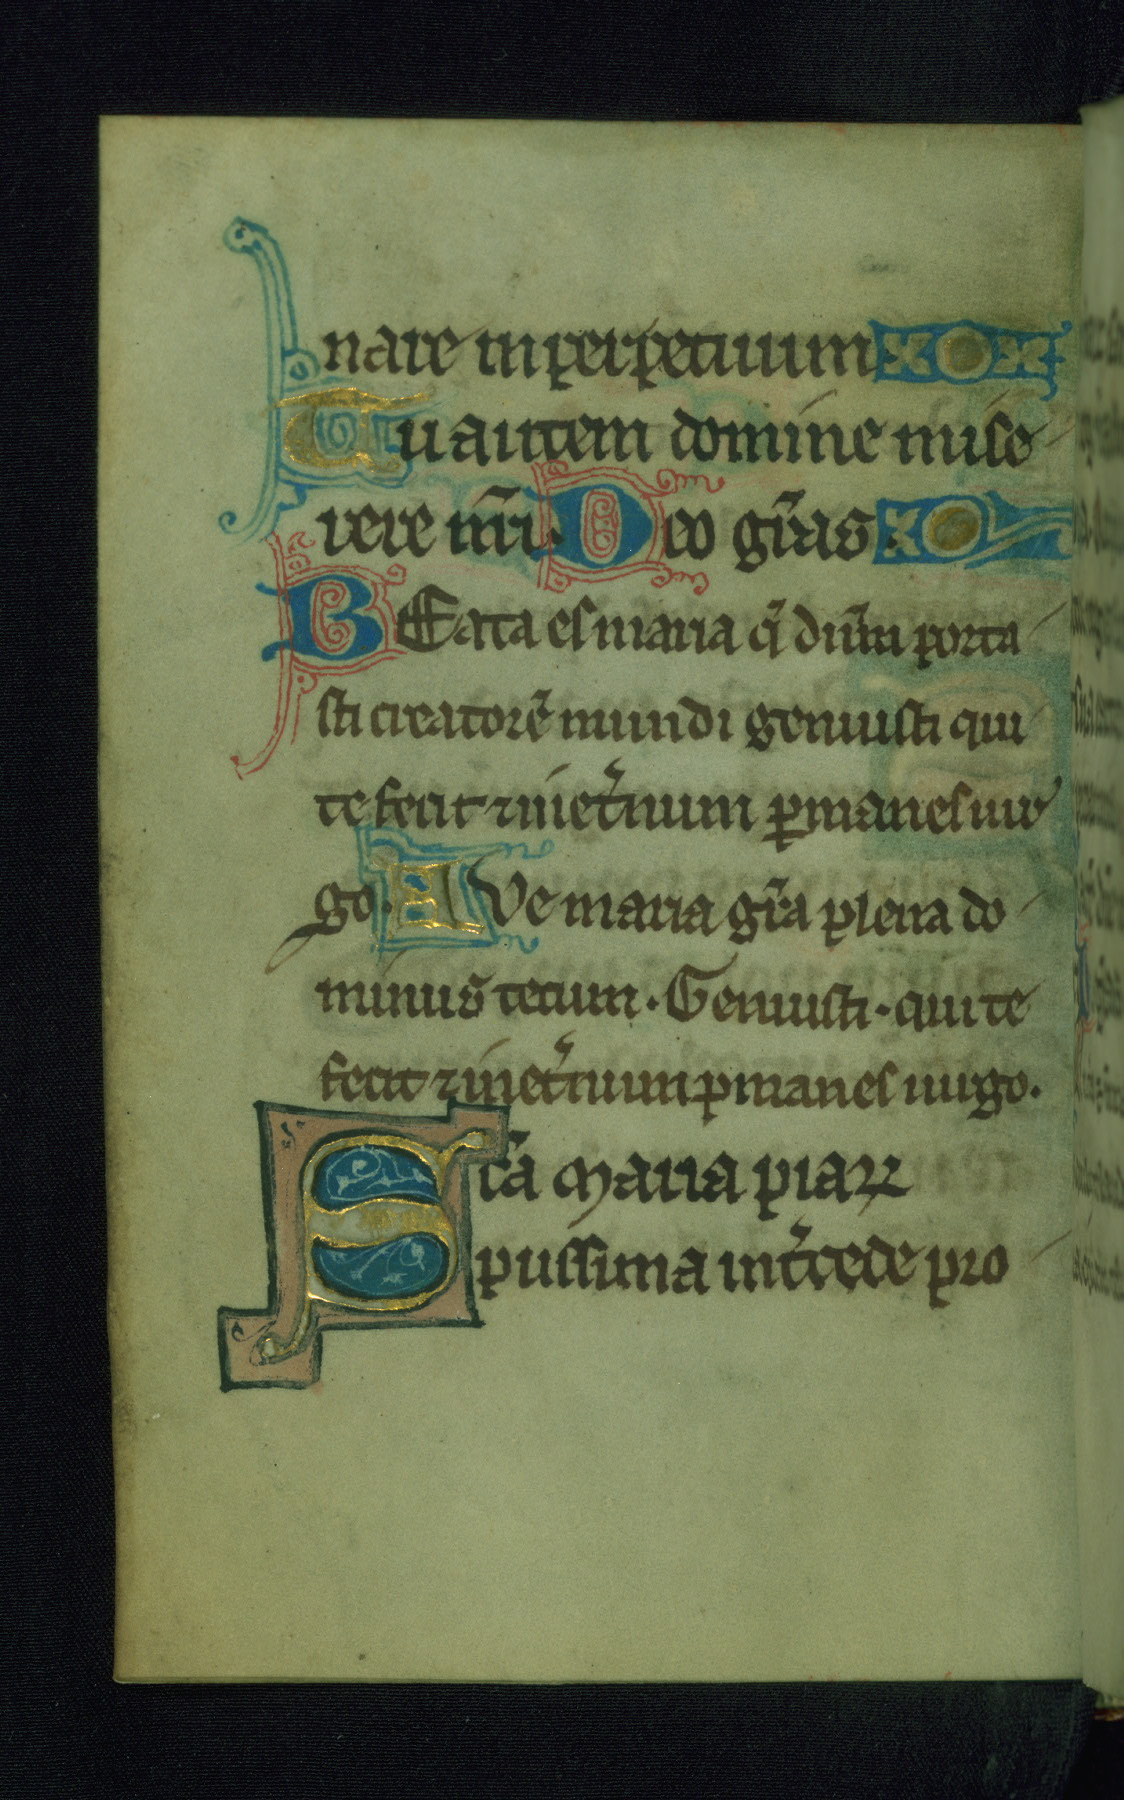 nare in perpetuum
Tu autem domine mise
rere nr̃i. Deo gr̃as.
BEata es maria q̃ dn̄m porta
sti creatorẽ mundi genuisti qui
te fecit ⁊ in et̾num ꝑmanes uir
go. AVe maria gr̃a plena do
minus tecum. Genuisti. qui te
fecit ⁊ in et̾num ꝑmanes uirgo.
Sc̃a Maria piaꝝ
piissima int̾cede pro